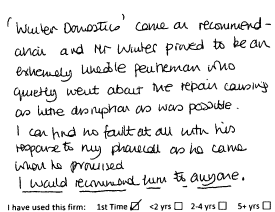 'Winter Domestics' came on recommend-
ation and Mr Winter proved to be an
extremely likeable gentleman who
quietly went about the repair causing
as little disruption as was possible.
I can find no fault at all with his
response to my phonecall as he came
when he promised
I would recommend him to anyone.
I have used this firm: 1st Time ☑ <2 yrs ☐ 2-4 yrs ☐ 5+ yrs ☐